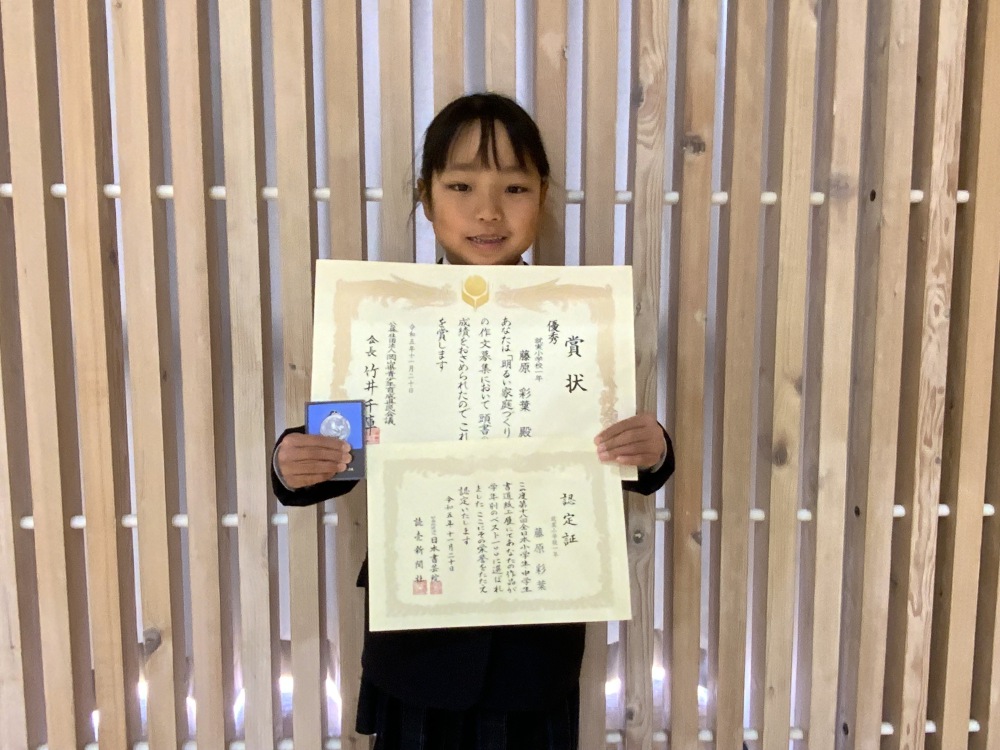 賞状
優秀
就実小学校一年
藤原 彩葉 殿
あなたは「明るい家庭づくり
の作文募集において頭書の
成績をおさめられたのでこれ
を賞します
令和五年十一月二十日
公益社団法人岡山県青少年育成県民会議
会長 竹井千庫
認定証
就実小学校一年
藤原 彩葉
この度第十八回全日本小学生中学生
書道紙上展にてあなたの作品が
学年別のベスト一〇〇に選ばれ
ました ここにその栄誉をたたえ
認定いたします
令和五年十一月二十日
日本書芸院
読売新聞社